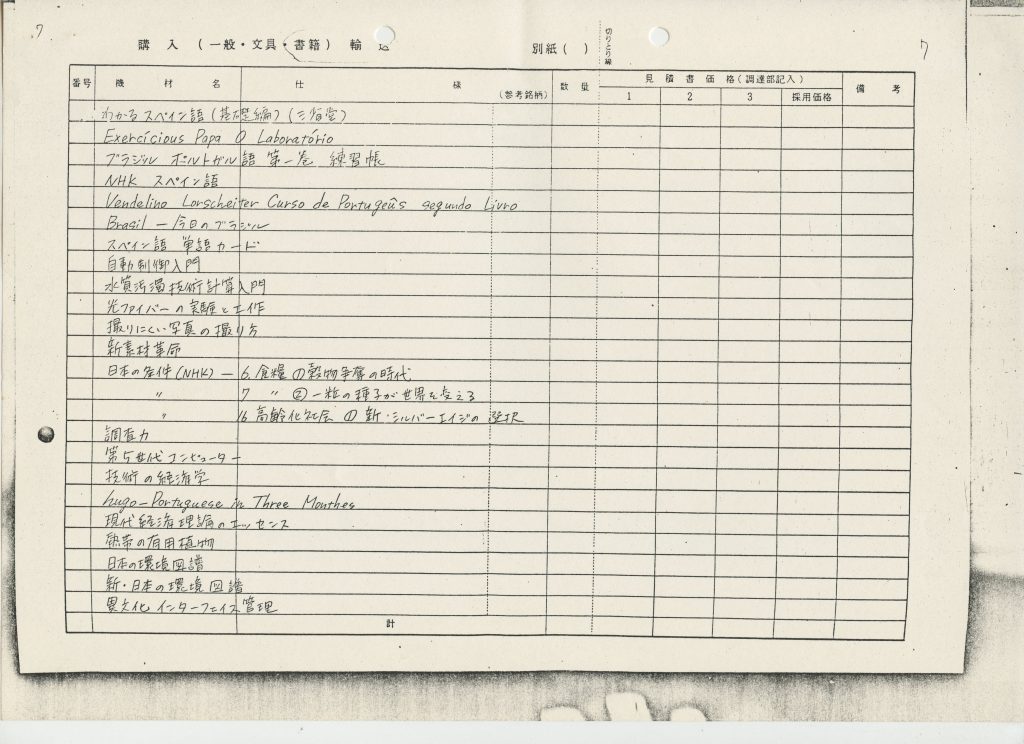 7
購入 (一般・文具・書籍) 輸送 別紙( ) 切りとり線 7
番号 機材名 仕様 (参考銘柄) 数量 見積書価格(調達部記入) 備考
1 2 3 採用価格
わかるスペイン語 (基礎編) (三省堂)
Exercícious Papa O Laboratório
ブラジル ポルトガル語 第一巻 練習帳
NHK スペイン語
Vendelino Lorscheiter Curso de Portugeûs segundo Livro
Brasil — 今日のブラジル
スペイン語 単語カード
自動制御入門
水質汚濁技術計算入門
光ファイバーの実験と工作
撮りにくい写真の撮り方
新素材革命
日本の条件 (NHK) — 6. 食糧 ① 穀物争奪の時代
〃 7 〃 ② 一粒の種子が世界を変える
〃 16 高齢化社会 ① 新・シルバーエイジの選択
調査力
第5世代コンピューター
技術の経済学
hugo-Portuguese in Three Monthes
現代経済理論のエッセンス
熱帯の有用植物
日本の環境図譜
新・日本の環境図譜
異文化インターフェイス管理
計